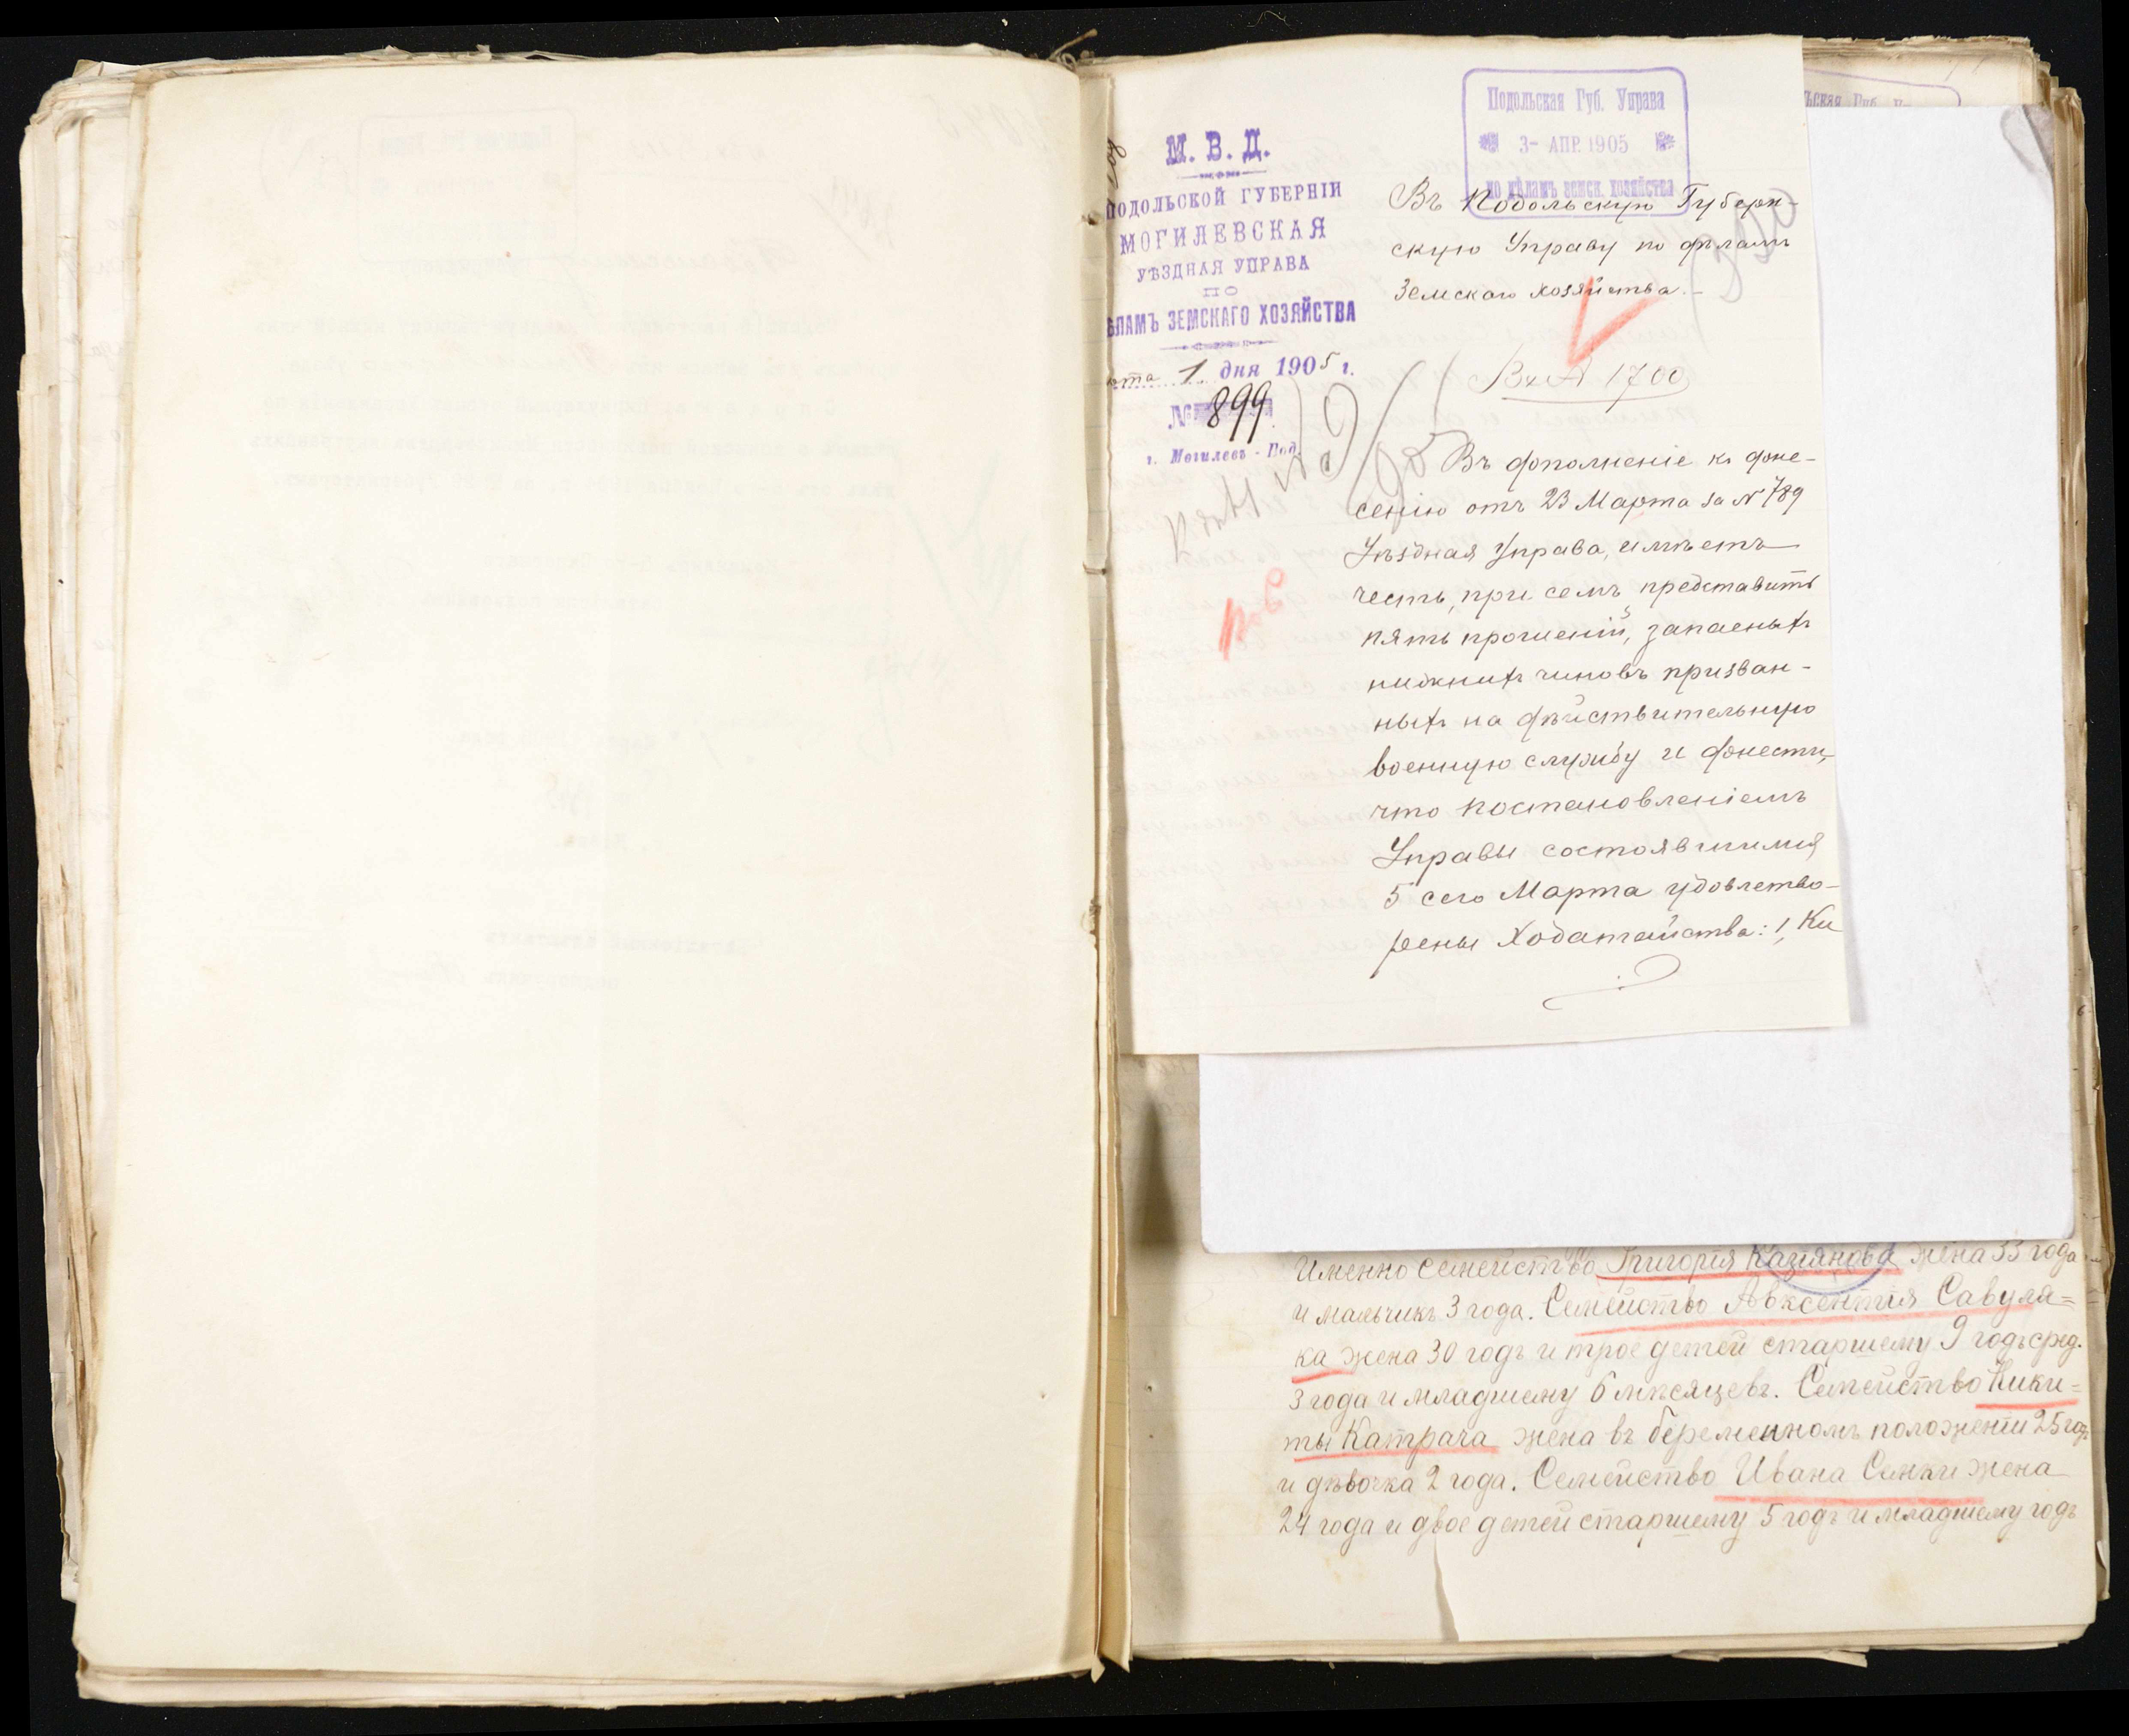 Подольская Губ. Управа
3- АПР. 1905
по дѣламъ земск. хозяйства
М. В. Д.
ПОДОЛЬСКОЙ ГУБЕРНІИ
МОГИЛЕВСКАЯ
УѢЗДНАЯ УПРАВА
ПО
ѢЛАМЪ ЗЕМСКАГО ХОЗЯЙСТВА
рта 1 дня 1905 г.
№ 899
г. Могилевъ - Под.
Въ Подольскую Губерн-
скую Управу по дѣламъ
Земскаго хозяйства.-
Вх 1700
Въ дополненіе къ доне-
сенію отъ 23 Марта за № 789
Уѣздная Управа, имѣетъ
честь, при семъ представить
пять прошеній, запасныхъ
нижнихъ чиновъ призван-
ныхъ на дѣйствительную
военную службу и донести,
что постановленіемъ
Управы состоявшимся
5 сего Марта удовлетво-
рены Ходатайства: 1, Ки
именно семейство Григорія Казіянова жена 33 года
и мальчикъ 3 года. Семейство Авксентія Савуля=
ка жена 30 годъ и трое детей старшему 9 годъ сред.
3 года и младшему 6 мѣсяцевъ. Семейство Ники=
ты Катрача жена въ беременномъ положеніи 25 годъ
и дѣвочка 2 года. Семейство Ивана Сенки жена
24 года и двое детей старшему 5 годъ и младшему годъ